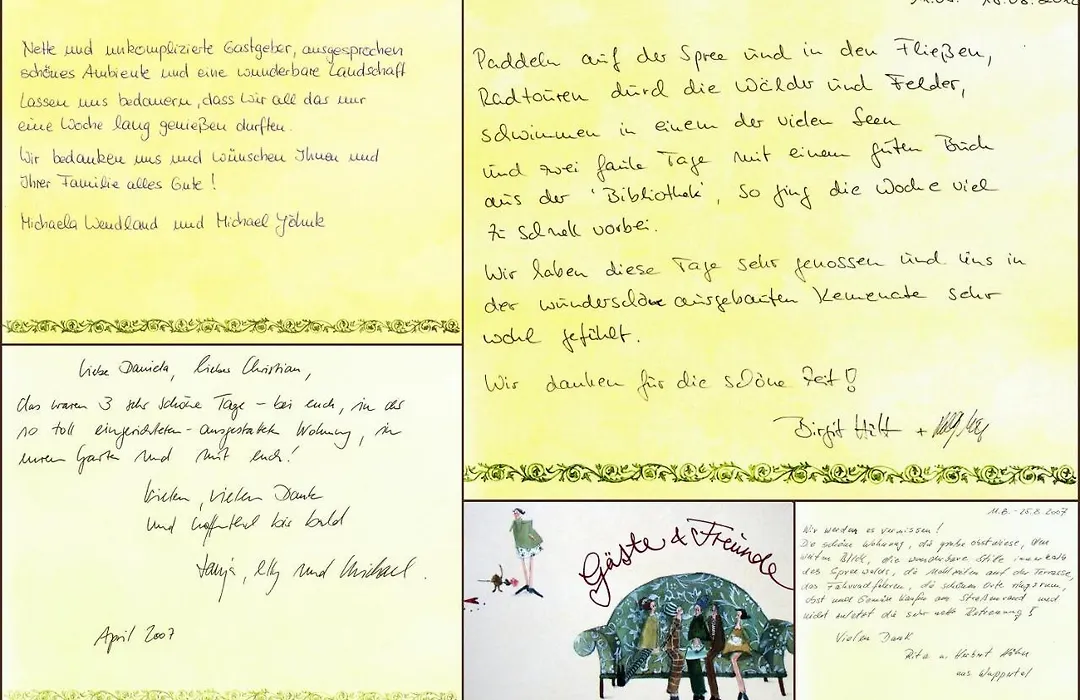 Nette und unkomplizierte Gastgeber, ausgesprochen
schönes Ambiente und eine wunderbare Landschaft
Lassen uns bedauern, dass wir all das nur
eine Woche lang genießen durften.
Wir bedanken uns und wünschen Ihnen und
Ihrer Familie alles Gute!
Michaela Wendland und Michael Jöhnk
Liebe Daniela, lieber Christian,
das waren 3 sehr schöne Tage - bei euch, in der
so toll eingerichteten - ausgestatteten Wohnung, in
eurem Garten und mit euch!
Vielen, vielen Dank
und hoffentlich bis bald
Tanja, Elly und Michael.
April 2007
Paddeln auf der Spree und in den Fließen,
Radtouren durch die Wälder und Felder,
schwimmen in einem der vielen Seen
und zwei faule Tage mit einem guten Buch
aus der 'Bibliothek', so ging die Woche viel
zu schnell vorbei.
Wir haben diese Tage sehr genossen und uns in
der wunderschöne ausgebauten Kemenate sehr
wohl gefühlt.
Wir danken für die schöne Zeit!
Birgit +
Gäste & Freunde
11.8. - 25.8.2007
Wir werden es vermissen!
Die schöne Wohnung, die große Obstwiese, den
weiten Blick, die wunderbare Stille innerhalb
des Spreewalds, die Mahlzeiten auf der Terrasse,
das Fahrradfahren, die schönen Orte ringsrum,
Obst und Gemüse kaufen am Straßenrand und
nicht zuletzt die sehr nette Betreuung!
Vielen Dank
Rita u. Herbert Höhn
aus Wuppertal